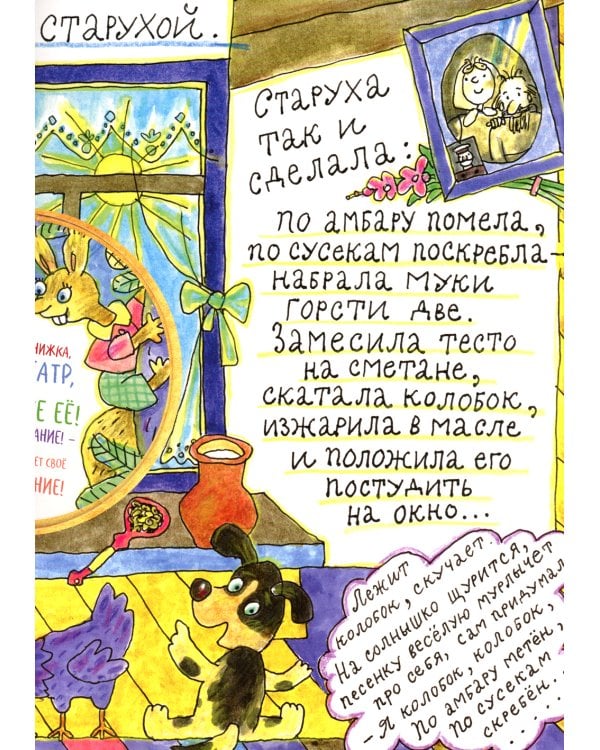 СТАРУХОЙ.
СТАРУХА
ТАК И
СДЕЛАЛА:
ПО АМБАРУ ПОМЕЛА,
ПО СУСЕКАМ ПОСКРЕБЛА –
НАБРАЛА МУКИ
ГОРСТИ ДВЕ.
ЗАМЕСИЛА ТЕСТО
НА СМЕТАНЕ,
СКАТАЛА КОЛОБОК,
ИЗЖАРИЛА В МАСЛЕ
И ПОЛОЖИЛА ЕГО
ПОСТУДИТЬ
НА ОКНО...
НИЖКА,
АТР,
Е ЕЁ!
АНИЕ! –
ЕТ СВОЁ
НИЕ!
ЛЕЖИТ
КОЛОБОК, СКУЧАЕТ.
НА СОЛНЫШКО ЩУРИТСЯ,
ПЕСЕНКУ ВЕСЁЛУЮ МУРЛЫЧЕТ
ПРО СЕБЯ, САМ ПРИДУМАЛ
– Я КОЛОБОК, КОЛОБОК,
ПО АМБАРУ МЕТЁН,
ПО СУСЕКАМ
СКРЕБЁН...